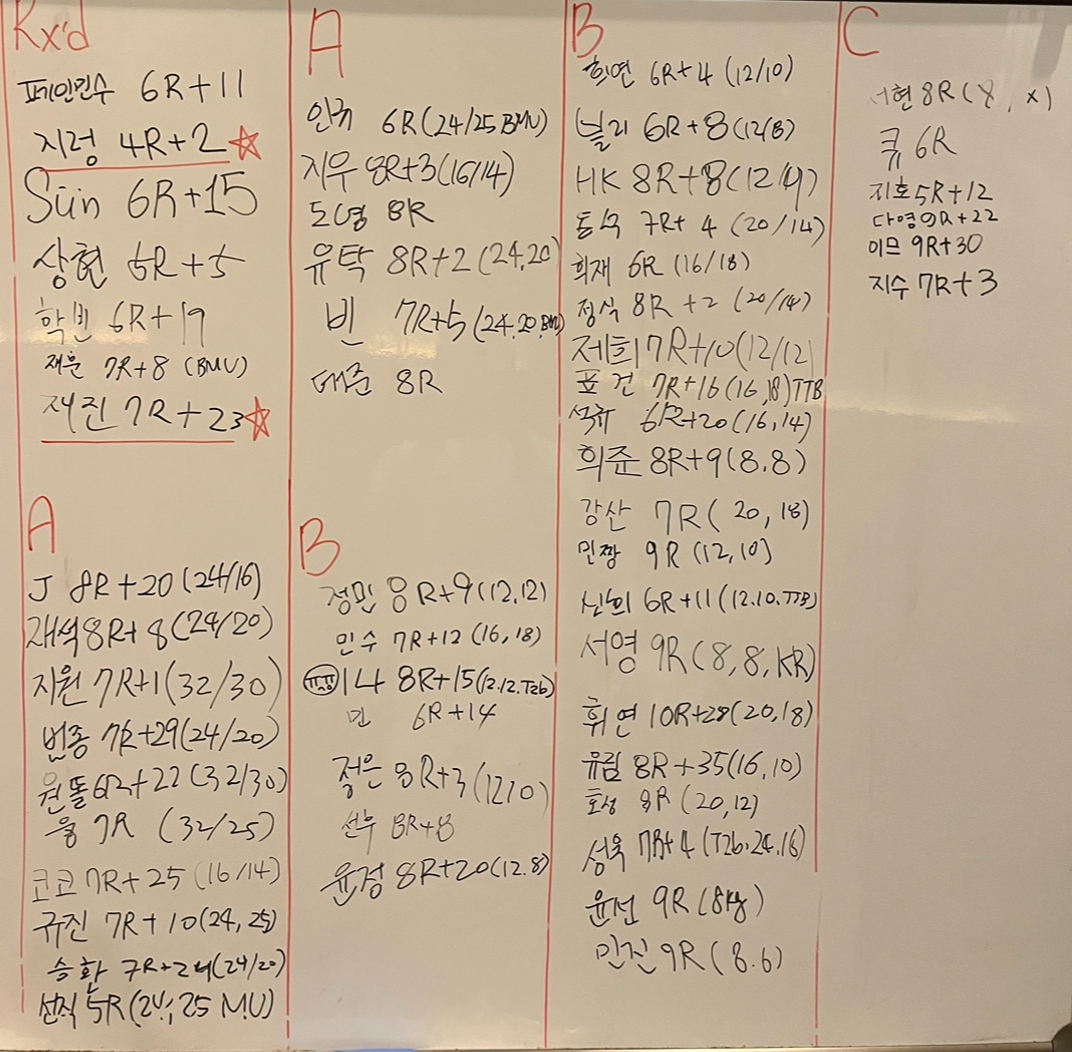 Rx'd
페인민수 6R+11
지정 4R+2
Sün 6R+15
상현 6R+5
학빈 6R+19
재윤 7R+8 (BMU)
재진 7R+23
A
J 8R+20(24/16)
재석 8R+8(24/20)
지원 7R+1(32/30)
번종 7R+29(24/20)
원똘 6R+22(32/30)
웅 7R (32/25)
코코 7R+25 (16/14)
규진 7R+10(24, 25)
승환 7R+24(24/20)
선식 5R(24, 25 MU)
A
인규 6R(24/25 BMU)
지우 8R+3(16/14)
도영 8R
유탁 8R+2(24,20)
빈 7R+5(24.20.BMU)
대준 8R
B
정민 8R+9(12,12)
민수 7R+12 (16,18)
나 8R+15(12.12.T2b)
민 6R+14
정은 8R+3(12 10)
선우 8R+8
윤정 8R+20(12.8)
B
희연 6R+4 (12/10)
빌리 6R+8(12/8)
HK 8R+8(12/9)
동욱 7R+4 (20/14)
희재 6R (16/18)
정식 8R+2 (20/14)
제희 7R+10(12/12)
표건 7R+16(16,18)TTB
석규 6R+20(16,14)
희준 8R+9(8.8)
강산 7R( 20, 18)
민짱 9R (12,10)
신희 6R+11(12.10.TTB)
서영 9R(8,8,KR)
휘연 10R+28(20,18)
유림 8R+35(16,10)
효성 8R (20,12)
성욱 7R+4(T2b.24.16)
윤선 9R(8kg)
민진 9R(8.6)
C
서현 8R(8, x)
퀵 6R
지호 5R+12
다영 9R+22
이브 9R+30
지수 7R+3